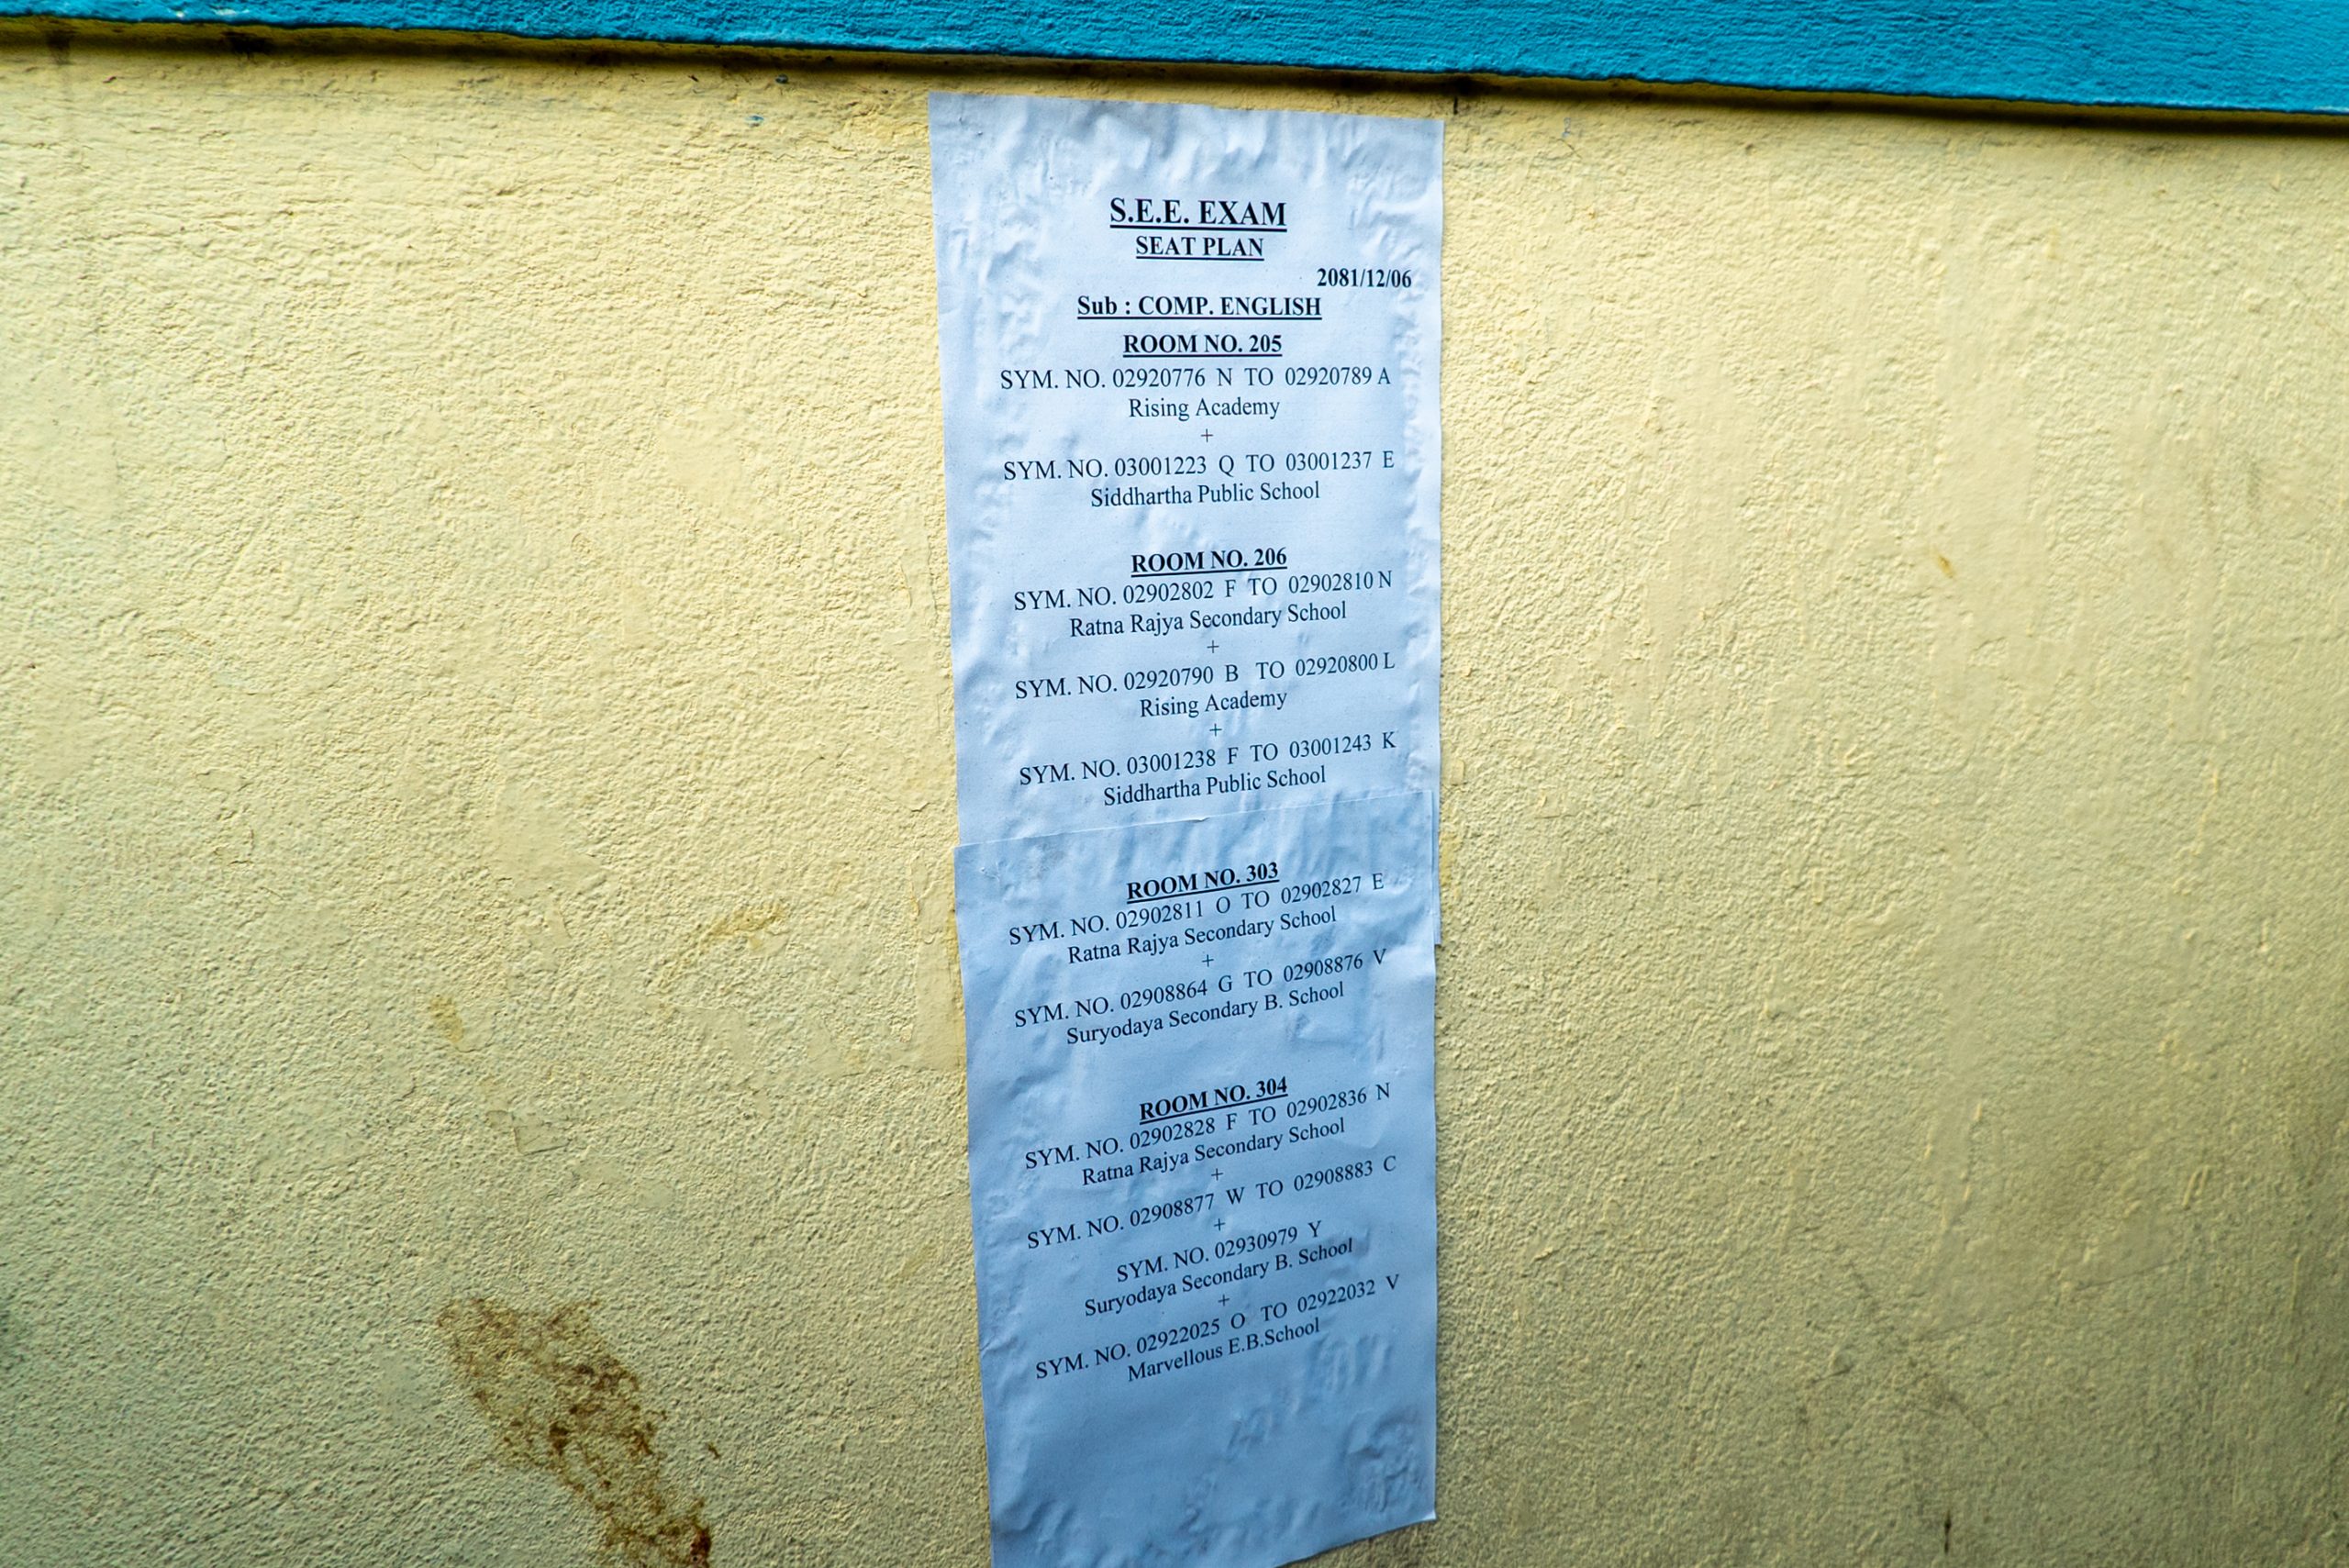 S.E.E. EXAM
SEAT PLAN
2081/12/06
Sub : COMP. ENGLISH
ROOM NO. 205
SYM. NO. 02920776 N TO 02920789 A
Rising Academy
+
SYM. NO. 03001223 Q TO 03001237 E
Siddhartha Public School
ROOM NO. 206
SYM. NO. 02902802 F TO 02902810 N
Ratna Rajya Secondary School
+
SYM. NO. 02920790 B TO 02920800 L
Rising Academy
+
SYM. NO. 03001238 F TO 03001243 K
Siddhartha Public School
ROOM NO. 303
SYM. NO. 02902811 O TO 02902827 E
Ratna Rajya Secondary School
+
SYM. NO. 02908864 G TO 02908876 V
Suryodaya Secondary B. School
ROOM NO. 304
SYM. NO. 02902828 F TO 02902836 N
Ratna Rajya Secondary School
+
SYM. NO. 02908877 W TO 02908883 C
+
SYM. NO. 02930979 Y
Suryodaya Secondary B. School
+
SYM. NO. 02922025 O TO 02922032 V
Marvellous E.B.School